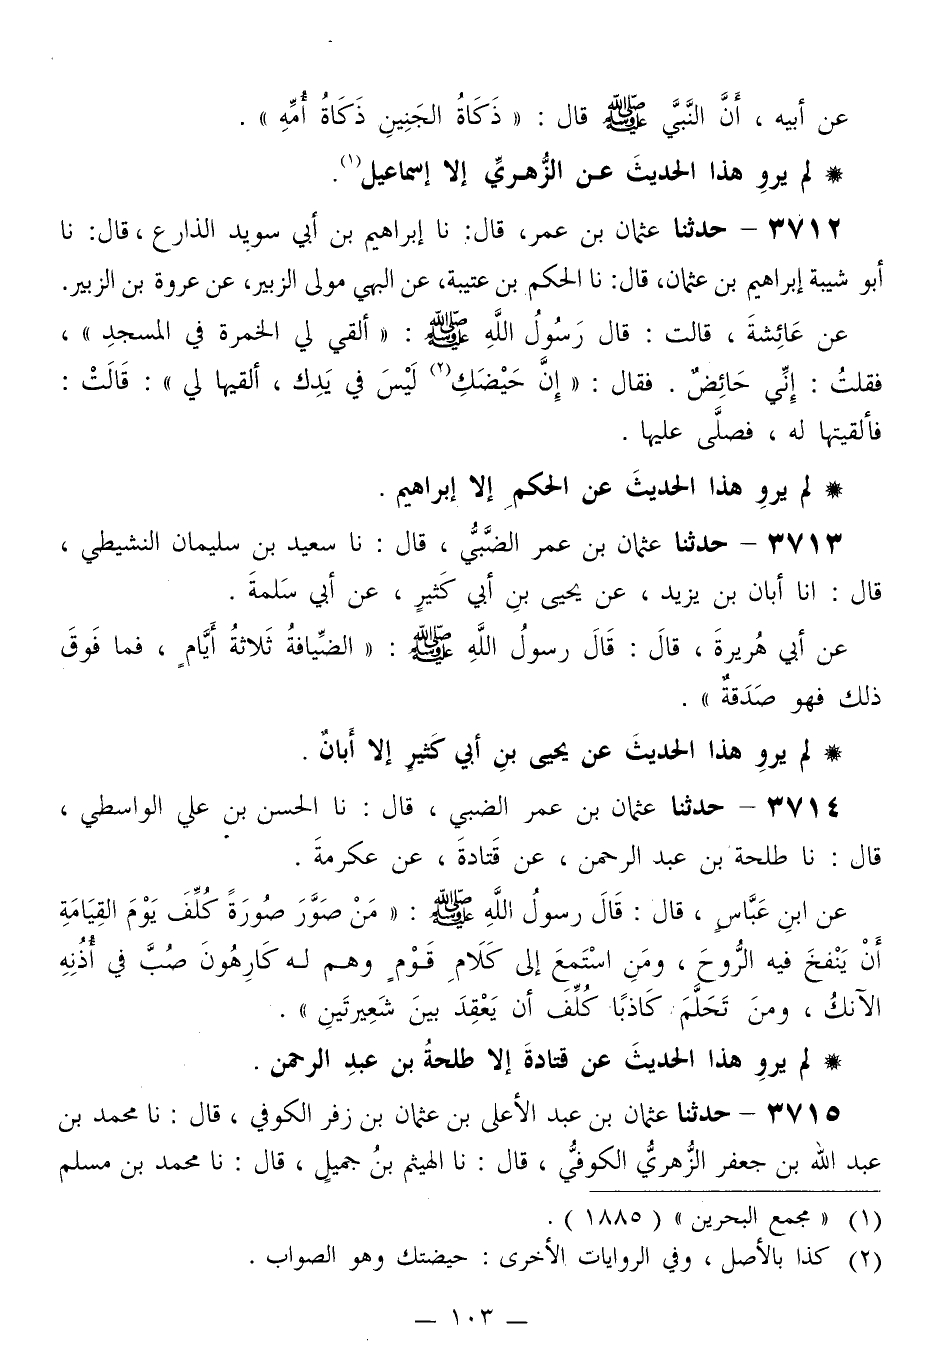 عن أبيه ، أَنَّ النَّبيَّ ﷺ قال : « ذَكَاةُ الجَنِينِ ذَكَاةُ أُمِّهِ » .
* لم يروِ هذا الحديثَ عـن الزُّهـريِّ إلا إسماعيل(١).
٣٧١٢ – حدثنا عثمان بن عمر، قال: نا إبراهيم بن أبي سويد الذارع ، قال: نا
أبو شيبة إبراهيم بن عثمان، قال: نا الحكم بن عتيبة، عن البهي مولى الزبير، عن عروة بن الزبير.
عن عَائِشةَ ، قالت : قال رَسُولُ اللَّهِ ﷺ : « ألقي لي الخمرة في المسجدِ » ،
فقلتُ : إِنِّي حَائِضٌ . فقال : « إِنَّ حَيْضَكِ(٢) لَيْسَ في يَدِك ، ألقيها لي » : قَالَتْ :
فألقيتها له ، فصلَّى عليها .
* لم يروِ هذا الحديثَ عن الحكمِ إلا إبراهيم .
٣٧١٣ – حدثنا عثمان بن عمر الضَّبِّيُّ ، قال : نا سعيد بن سليمان النشيطي ،
قال : انا أبان بن يزيد ، عن يحيى بنِ أبي كَثيرٍ ، عن أبي سَلمةَ .
عن أبي هُريرةَ ، قالَ : قَالَ رسولُ اللَّهِ ﷺ : « الضِّيافةُ ثَلاثةُ أَيَّامٍ ، فما فَوقَ
ذلك فهو صَدَقةٌ » .
* لم يروِ هذا الحديثَ عن يحيى بنِ أبي كَثيرٍ إلا أَبانٌ .
٣٧١٤ – حدثنا عثمان بن عمر الضبي ، قال : نا الحسن بن علي الواسطي ،
قال : نا طلحة بن عبد الرحمن ، عن قَتادةَ ، عن عكرمةَ .
عن ابنِ عَبَّاسٍ ، قال : قَالَ رسولُ اللَّهِ ﷺ : « مَنْ صَوَّرَ صُورَةً كُلِّفَ يَوْمَ القِيَامَةِ
أَنْ يَنْفخَ فيه الرُّوحَ ، ومَنِ اسْتَمعَ إلى كَلَامِ قَـوْمٍ وهـم لـه كَارِهُونَ صُبَّ في أُذُنِهِ
الآنكُ ، ومنَ تَحَلَّمَ كَاذبًا كُلِّفَ أن يَعْقِدَ بينَ شَعِيرتَينِ » .
* لم يروِ هذا الحديثَ عن قتادةَ إلا طلحةُ بن عبدِ الرحمن .
٣٧١٥ – حدثنا عثمان بن عبد الأعلى بن عثمان بن زفر الكوفي ، قال : نا محمد بن
عبد الله بن جعفر الزُّهريُّ الكوفيُّ ، قال : نا الهيثم بنُ جميلٍ ، قال : نا محمد بن مسلم
(١) « مجمع البحرين » ( ١٨٨٥ ) .
(٢) كذا بالأصل ، وفي الروايات الأخرى : حيضتك وهو الصواب .
— ١٠٣ —